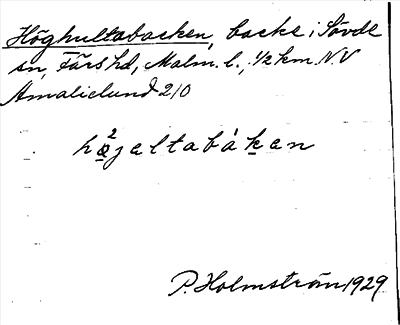 Höghultabacken, backe i Sövde
sn, Färs hd, Malm. l., 1/2 km. N.V
Amalielund 2/0
hø²jeltabáken
P. Holmström 1929